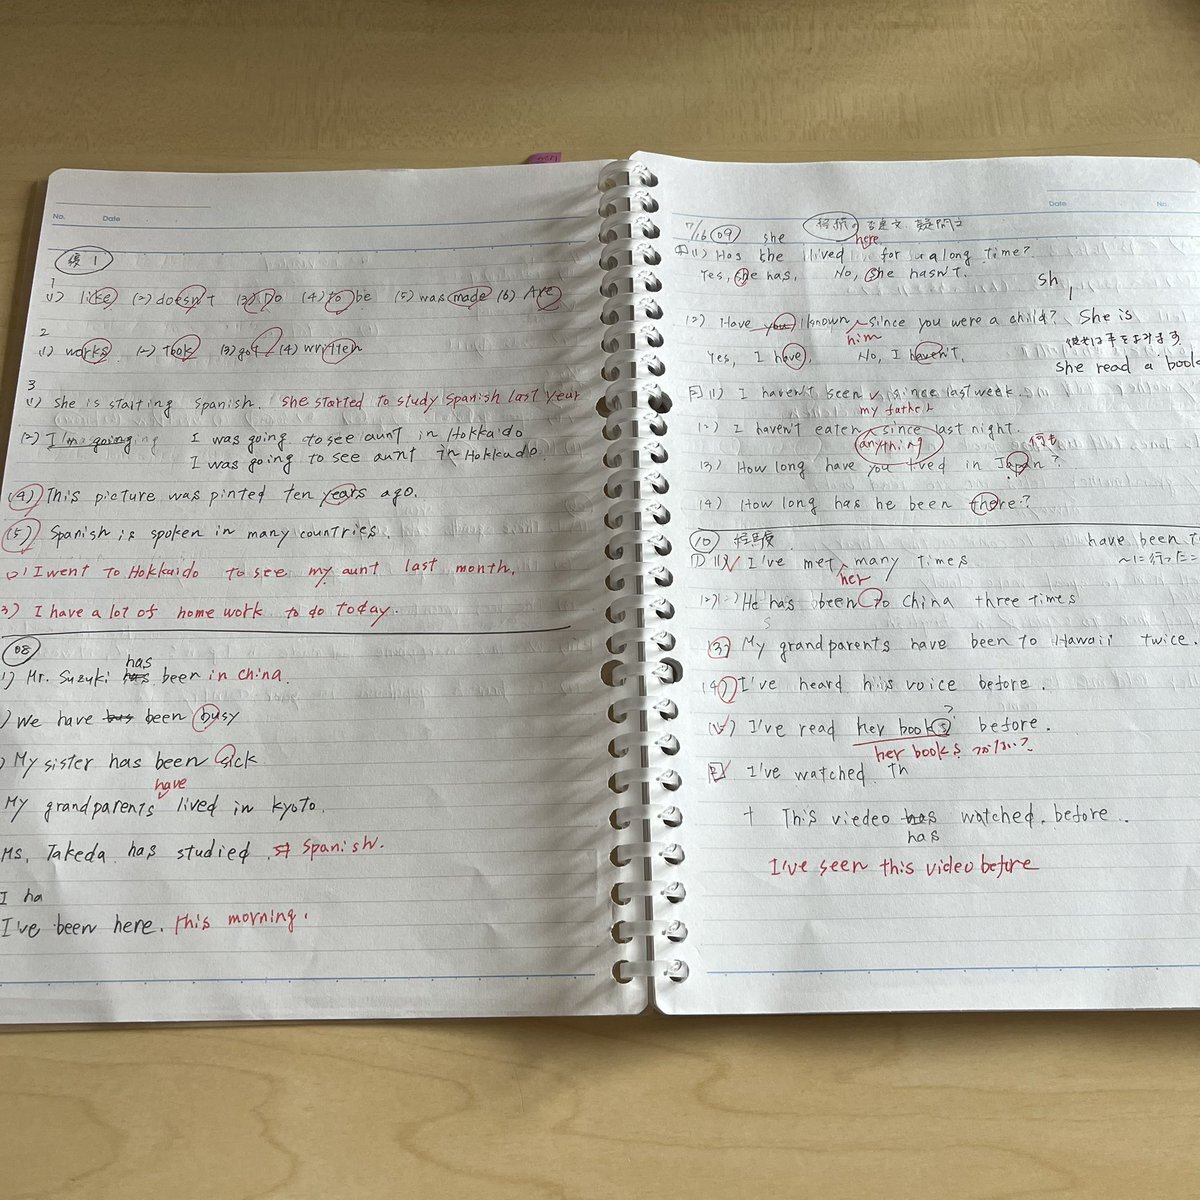 No. Date
復1
1
(1) like (2) doesn't (3) Do (4) to be (5) was made (6) Are
2
(1) works (2) took (3) got (4) written
3
(1) She is starting Spanish. She started to study Spanish last year
(2) I'm going I was going to see aunt in Hokkaido
I was going to see aunt in Hokkaido.
(4) This picture was pinted ten years ago.
(5) Spanish is spoken in many countries.
I went to Hokkaido to see my aunt last month.
3) I have a lot of home work to do today.
08
1) Mr. Suzuki has been in china.
has
) We have been busy
) My sister has been sick
have
My grandparents lived in kyoto.
Ms. Takeda has studied Spanish.
I ha
I've been here. this morning.
Date No.
7/16 09 she 否定文 疑問文
here
1 (1) Has she lived for a long time?
Yes, she has, No, she hasn't.
sh
(2) Have you known since you were a child? She is
him
Yes, I have, No, I haven't.
She read a book
2 (1) I haven't seen since last week.
my father
(2) I haven't eaten since last night.
anything 何も
(3) How long have you lived in Japan?
(4) How long has he been there?
10 経験 have been t
~に行ったこ
1 (1) I've met many times
her
(2) He has been to China three times
s
(3) My grandparents have been to Hawaii twice.
(4) I've heard his voice before.
?
I've read her books before.
her books
2 I've watched Th
† This viedeo has watched. before..
has
I've seen this video before